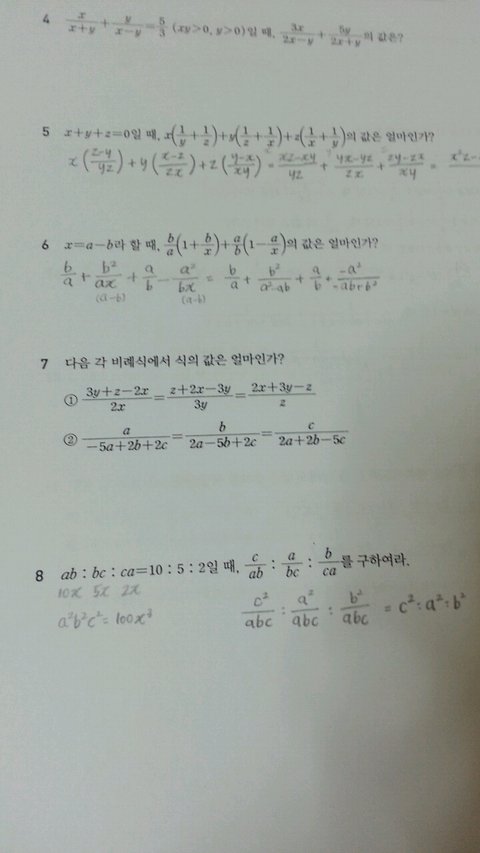 4 x/(x+y) + y/(x-y) = 5/3 (xy>0, y>0)일 때, 3x/(2x-y) + 5y/(2x+y)의 값은?
5 x+y+z=0일 때, x(1/y+1/z)+y(1/z+1/x)+z(1/x+1/y)의 값은 얼마인가?
x((z-y)/yz) + y((x-z)/zx) + z((y-x)/xy) = (xz-xy)/yz + (yx-yz)/zx + (zy-zx)/xy =
6 x=a-b라 할 때, b/a(1+b/x)+a/b(1-a/x)의 값은 얼마인가?
b/a + b²/ax + a/b - a²/bx = b/a + b²/(a²-ab) + a/b + -a²/(-ab+b²)
(a-b) (a-b)
7 다음 각 비례식에서 식의 값은 얼마인가?
① (3y+z-2x)/2x = (z+2x-3y)/3y = (2x+3y-z)/z
② a/(-5a+2b+2c) = b/(2a-5b+2c) = c/(2a+2b-5c)
8 ab : bc : ca=10 : 5 : 2일 때, c/ab : a/bc : b/ca를 구하여라.
10x 5x 2x
a²b²c²=100x³ c²/abc : a²/abc : b²/abc = c² : a² : b²